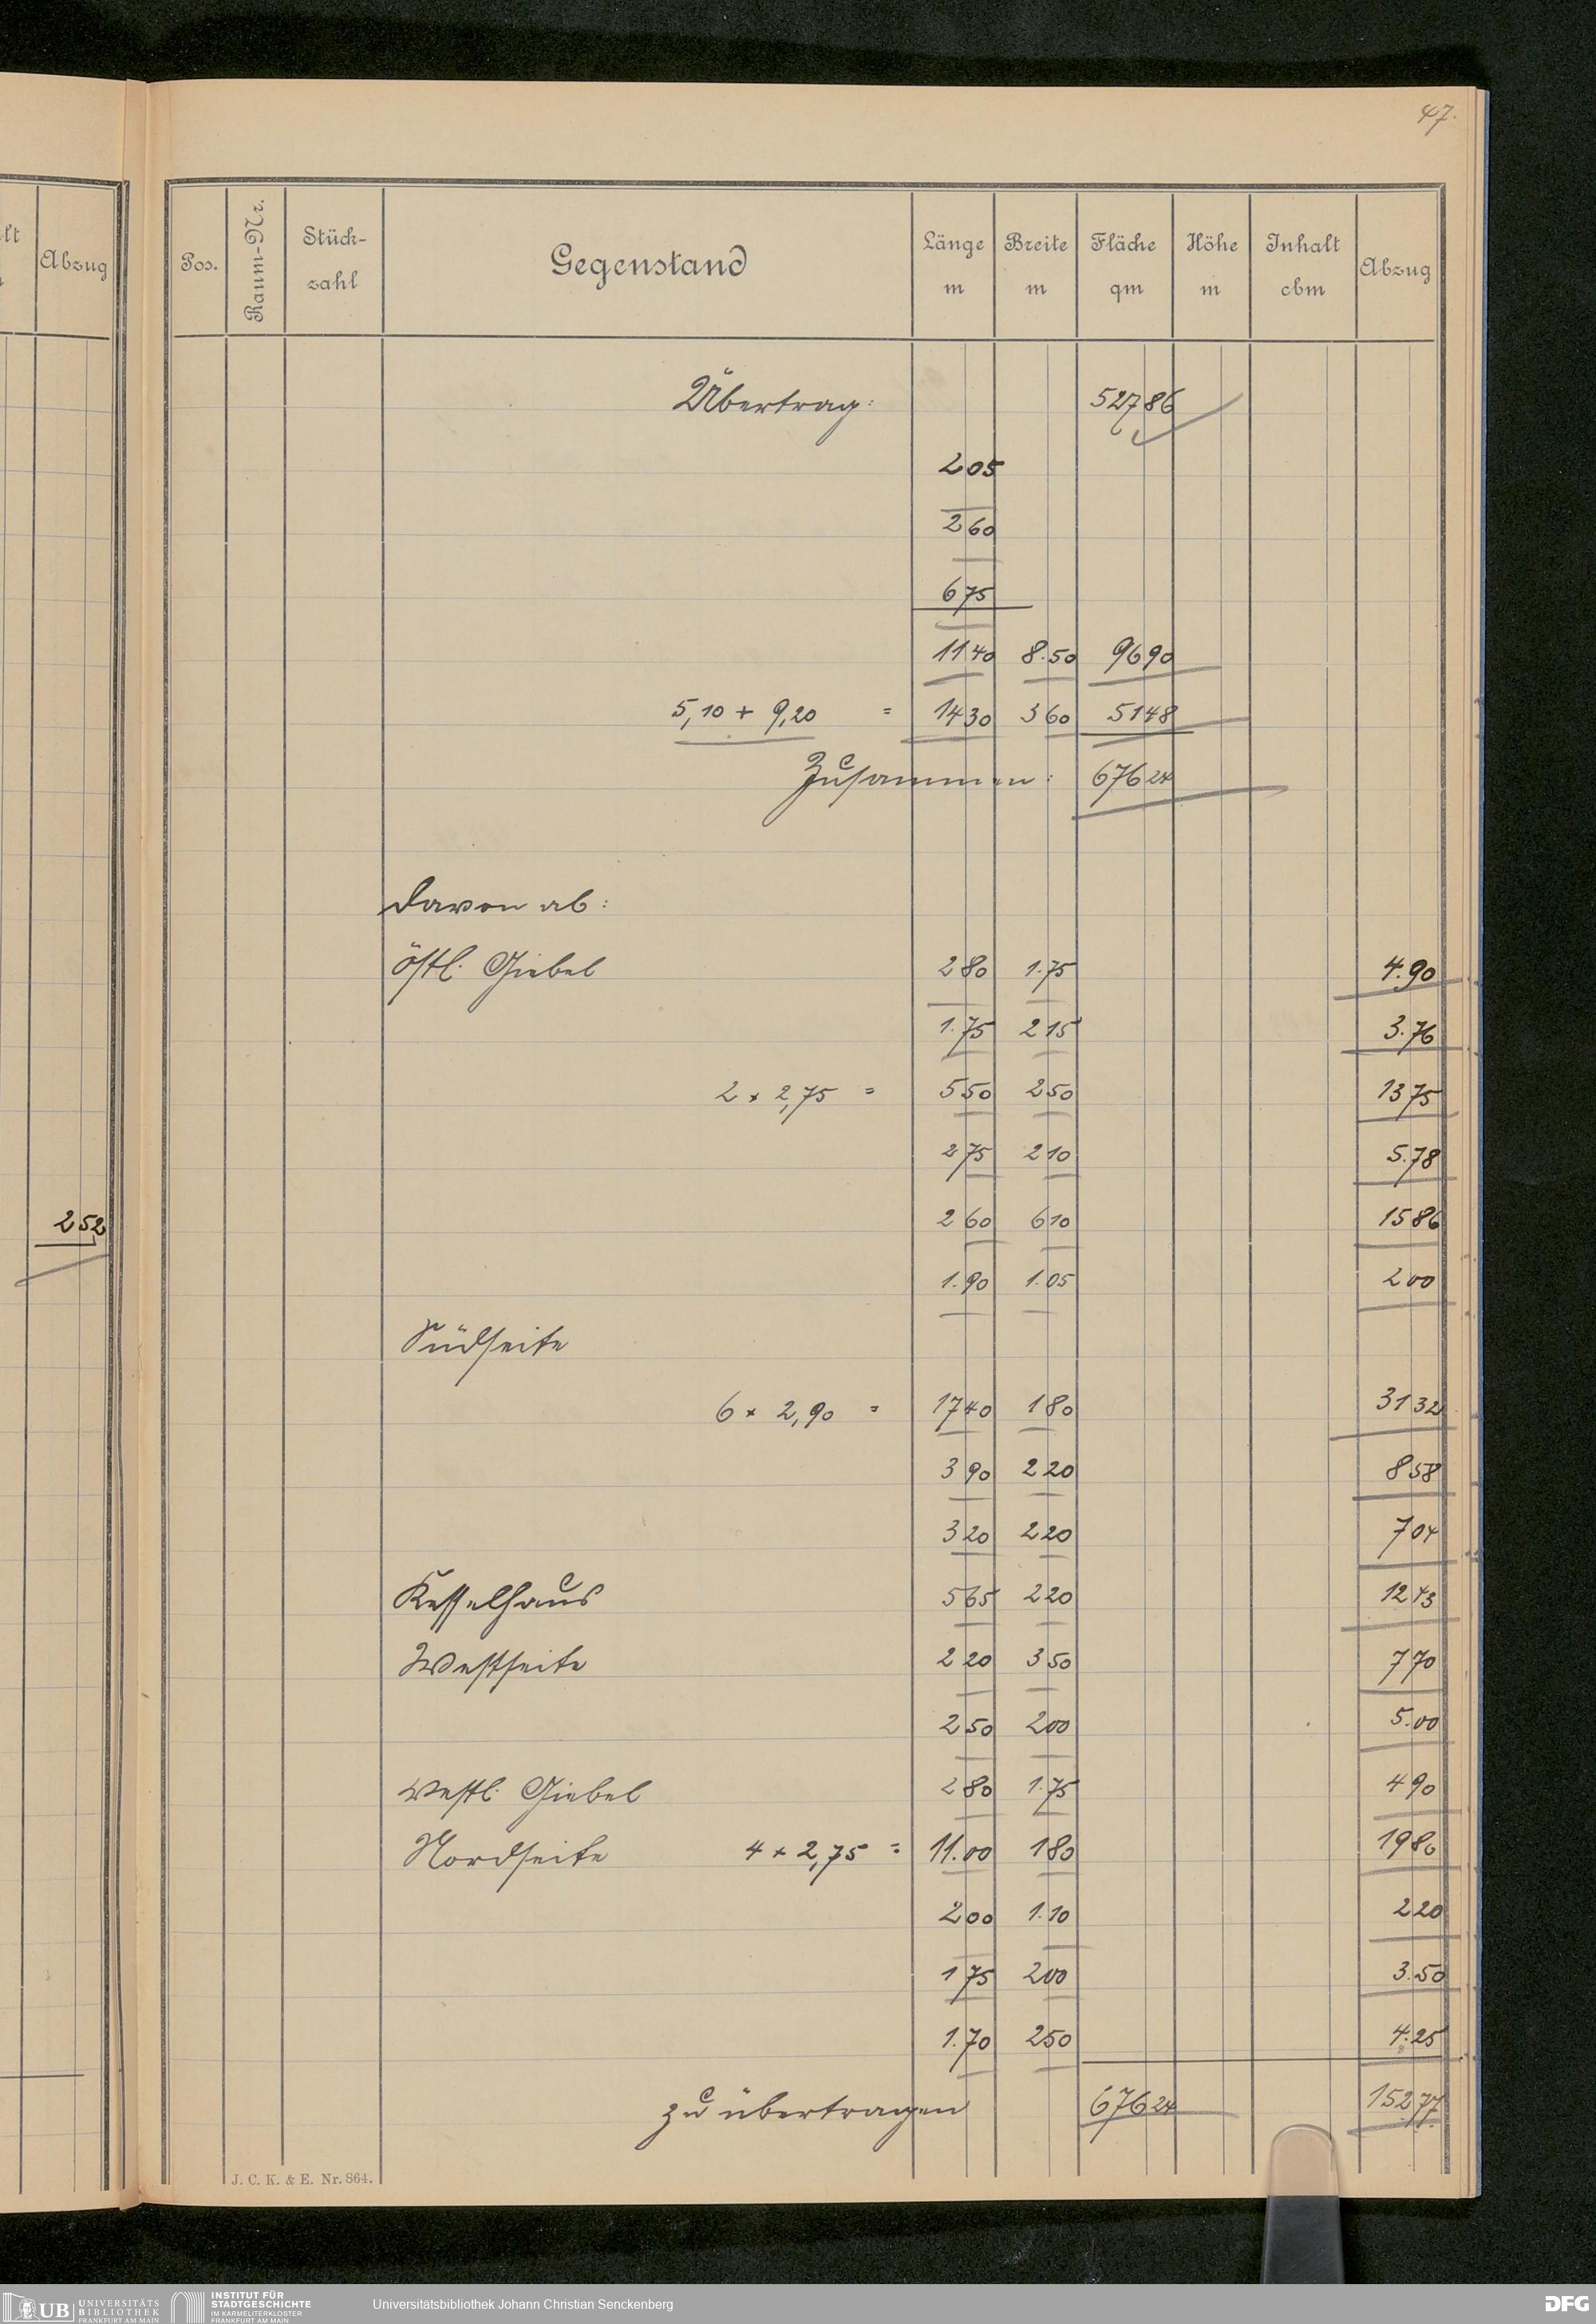 47.
lt
Abzug
252
Pos. Raum-Nr. Stück-zahl Gegenstand Länge m Breite m Fläche qm Höhe m Inhalt cbm Abzug
Übertrag: 527 86
2 05
2 60
6 75
11 40 8.50 96 90
5,10 + 9,20 = 14 30 3 60 51 48
Zusammen: 676 24
Davon ab:
östl. Giebel 2 80 1.75 4.90
1.75 2 15 3.76
2 x 2,75 = 5 50 2 50 13 75
2 75 2 10 5.78
2 60 6 10 15 86
1.90 1.05 2 00
Südseite
6 x 2,90 = 17 40 1 80 31 32
3 90 2 20 8 58
3 20 2 20 7 04
Kesselhaus 5 65 2 20 12 43
Westseite 2 20 3 50 7 70
2 50 2 00 5.00
westl. Giebel 2 80 1.75 4 90
Nordseite 4 x 2,75 = 11.00 1 80 19 80
2 00 1.10 2 20
1 75 2 00 3.50
1.70 2 50 4.25
zu übertragen 676 24 152 77
J. C. K. & E. Nr. 864.
UB UNIVERSITÄTS BIBLIOTHEK FRANKFURT AM MAIN
INSTITUT FÜR STADTGESCHICHTE IM KARMELITERKLOSTER FRANKFURT AM MAIN
Universitätsbibliothek Johann Christian Senckenberg
DFG